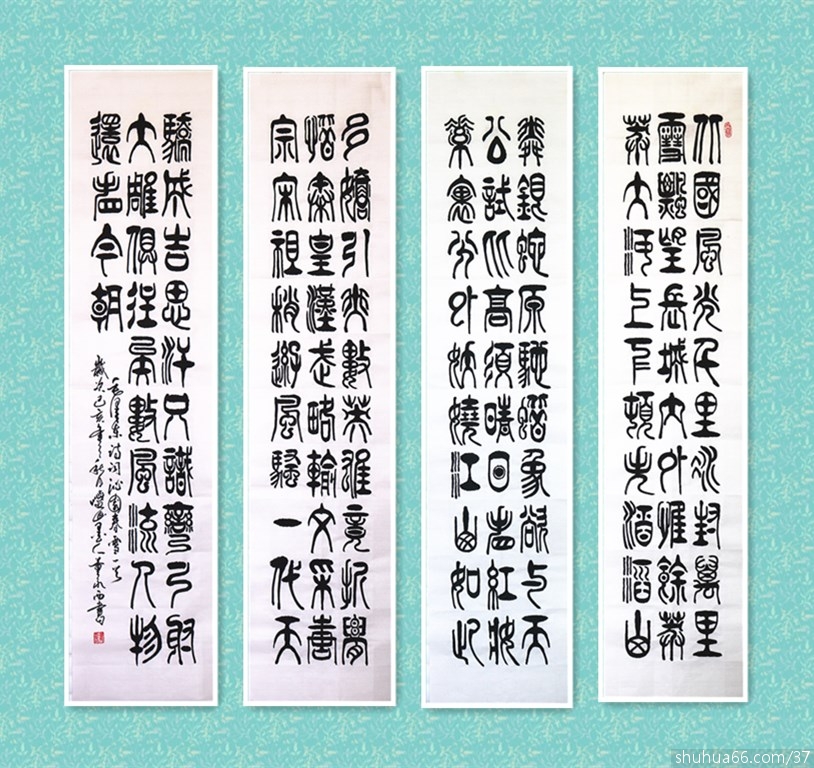 北國風光千里冰封萬里
雪飄望長城內外惟餘莽
莽大河上下頓失滔滔山
舞銀蛇原馳蠟象欲與天
公試比高須晴日看紅妝
素裹分外妖嬈江山如此
多嬌引無數英雄競折腰
惜秦皇漢武略輸文采唐
宗宋祖稍遜風騷一代天
驕成吉思汗只識彎弓射
大雕俱往矣數風流人物
還看今朝
毛澤東詩詞沁園春雪一首
歲次己亥年之秋月 書
shuhua66.com/37